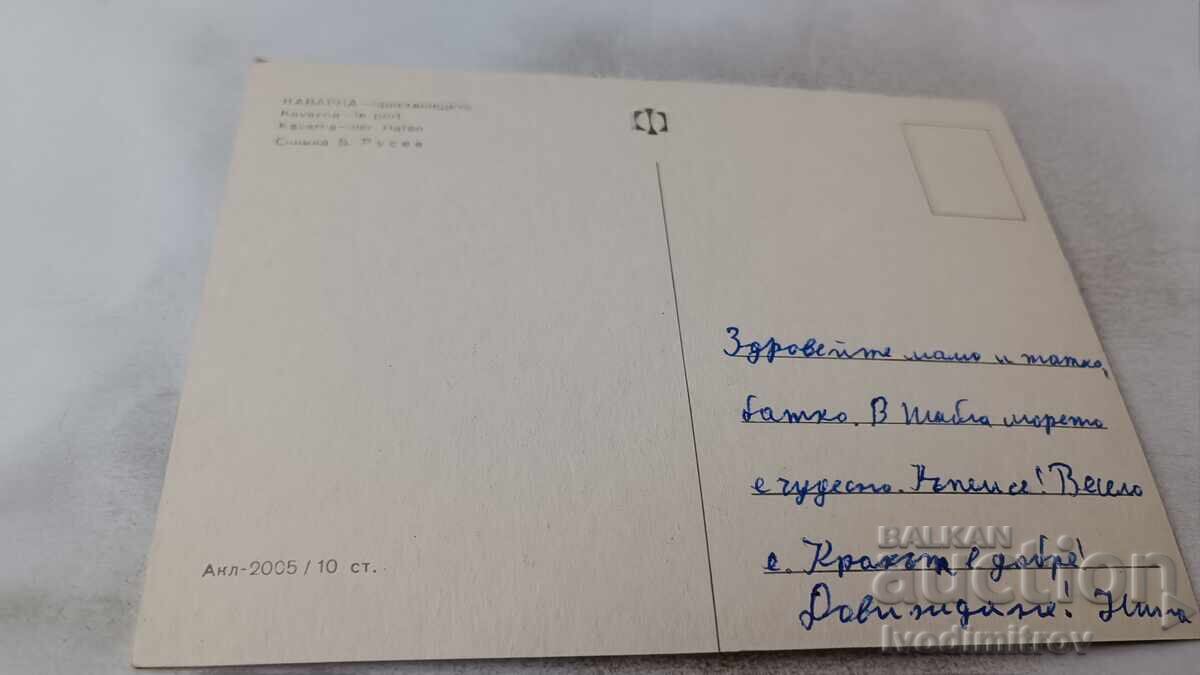 КАВАРНА — пристанището
Kavarna — le port
Kavarna — der Hafen
Снимка В. Русев
Здравейте мамо и татко,
батко. В Шабла морето
е чудесно. Къпем се! Весело
е. Кракът е добре!
Довиждане!
Акл-2005 / 10 ст.
BALKAN
auction
Ivodimitrov